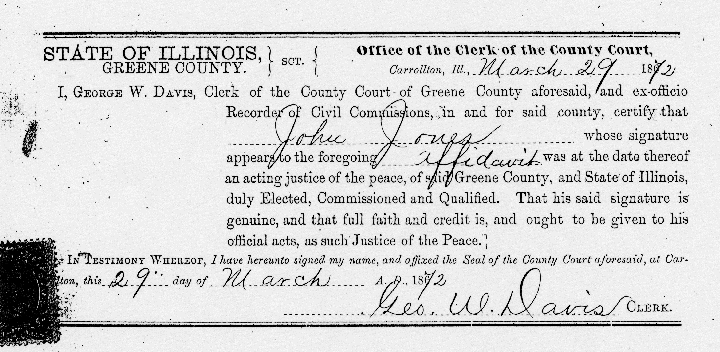 STATE OF ILLINOIS, GREENE COUNTY. } SCT. {
Office of the Clerk of the County Court,
Carrollton, Ill., March 29 1872
I, GEORGE W. DAVIS, Clerk of the County Court of Greene County aforesaid, and ex-officio
Recorder of Civil Commissions, in and for said county, certify that
John Jones whose signature
appears to the foregoing affidavit was at the date thereof
an acting justice of the peace, of said Greene County, and State of Illinois,
duly Elected, Commissioned and Qualified. That his said signature is
genuine, and that full faith and credit is, and ought to be given to his
official acts, as such Justice of the Peace.
IN TESTIMONY WHEREOF, I have hereunto signed my name, and affixed the Seal of the County Court aforesaid, at Car-
lton, this 29" day of March A. D. 1872
Geo. W. Davis CLERK.